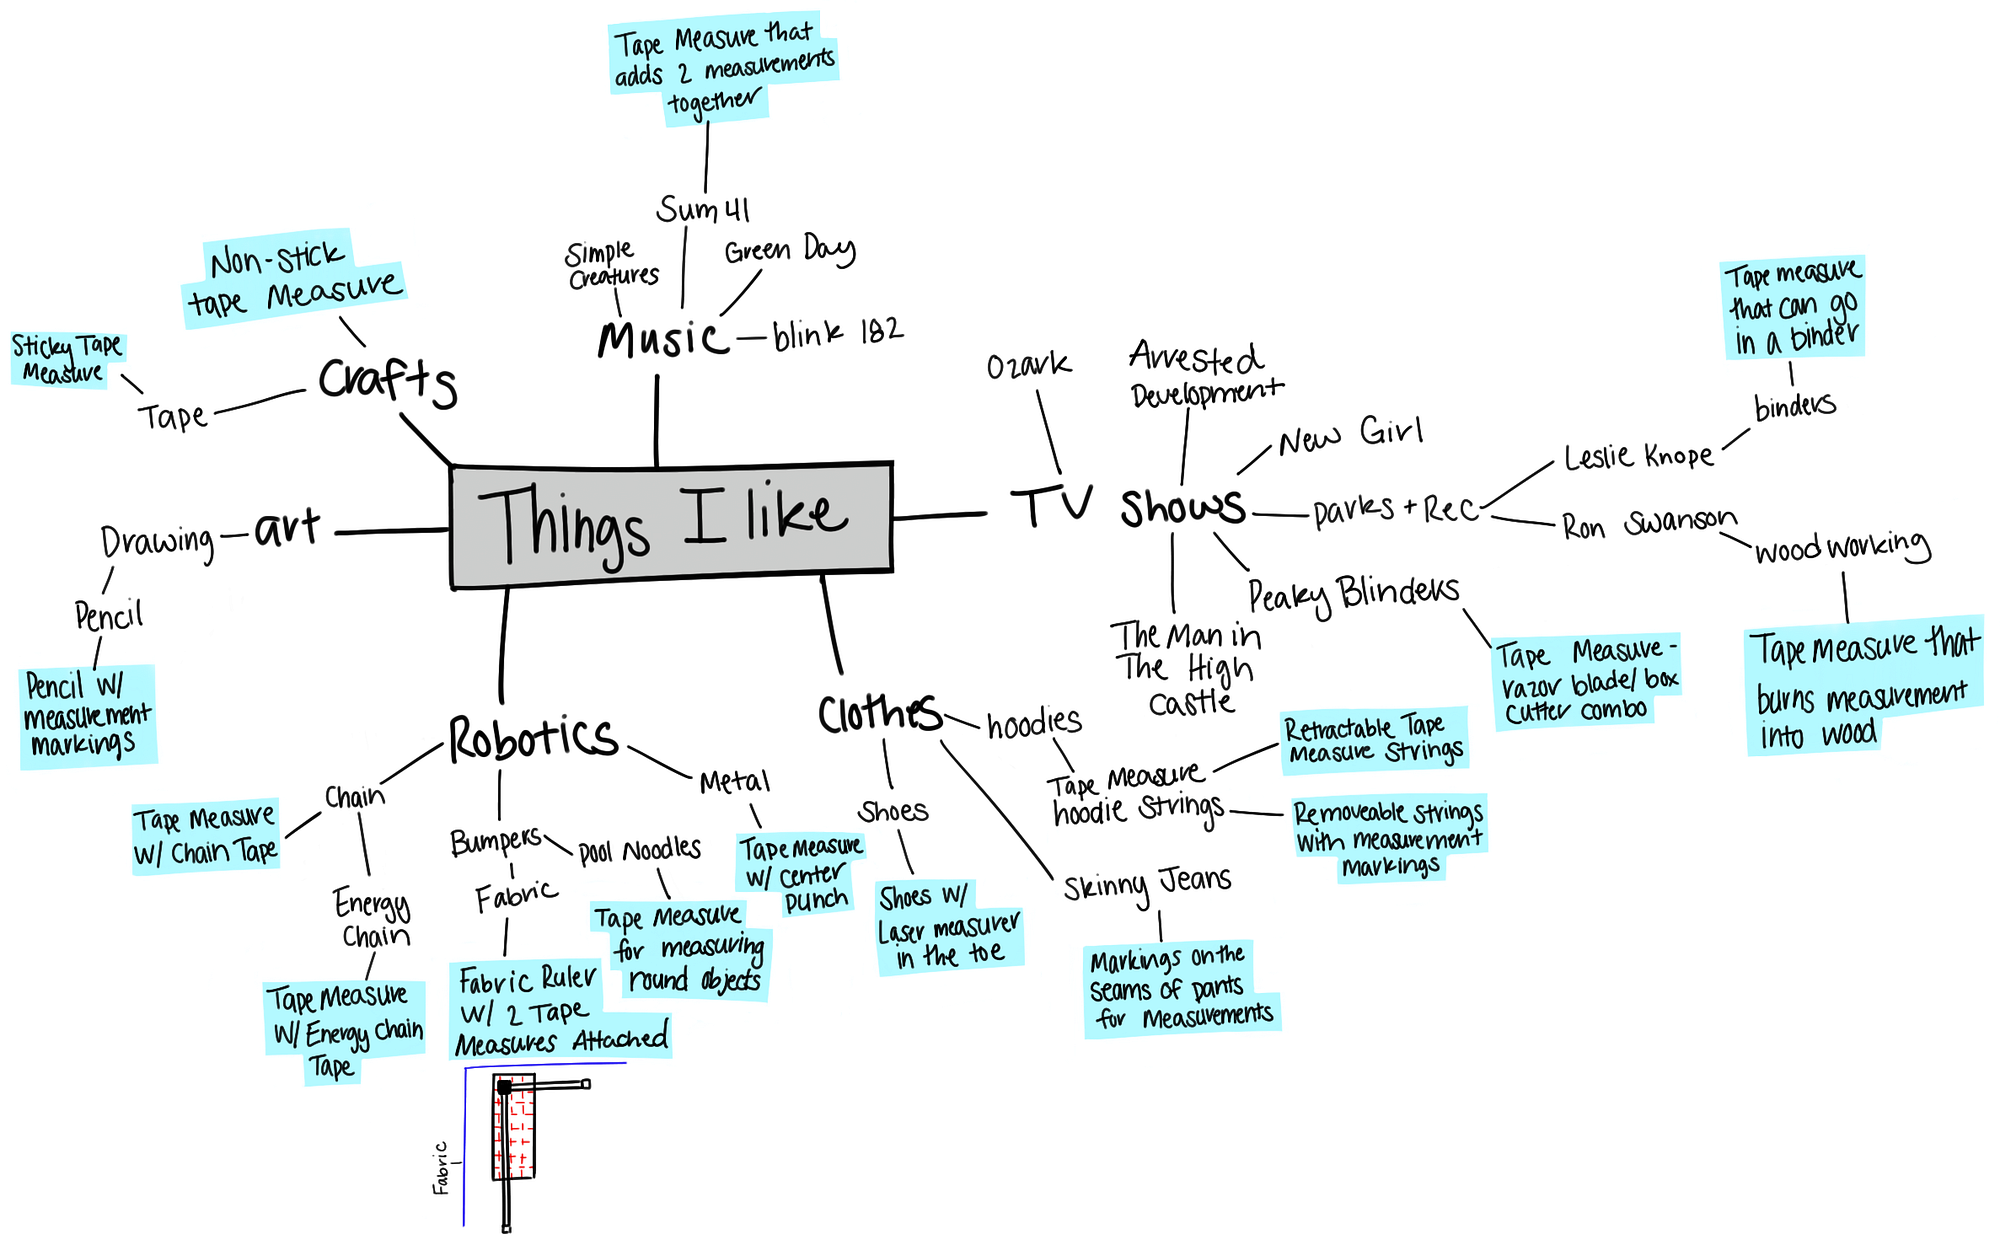 Tape Measure that
adds 2 measurements
together
Sum 41
Simple
Creatures
Green Day
Music
blink 182
Non-stick
tape Measure
Sticky Tape
Measure
Tape
Crafts
Things I like
art
Drawing
Pencil
Pencil w/
measurement
markings
TV Shows
Ozark
Arrested
Development
New Girl
Parks + Rec
Leslie Knope
binders
Tape measure
that can go
in a binder
Ron Swanson
woodworking
Tape Measure that
burns measurement
into wood
Peaky Blinders
Tape Measure -
razor blade/box
cutter combo
The Man in
The High
Castle
Robotics
Chain
Tape Measure
w/ Chain Tape
Energy
Chain
Tape Measure
w/ Energy Chain
Tape
Bumpers
Fabric
Fabric Ruler
w/ 2 Tape
Measures Attached
Fabric
Pool Noodles
Tape Measure
for measuring
round objects
Metal
Tape Measure
w/ center
punch
Clothes
hoodies
Tape Measure
hoodie strings
Retractable Tape
Measure Strings
Removeable strings
with measurement
markings
Shoes
Shoes w/
Laser measurer
in the toe
Skinny Jeans
Markings on the
seams of pants
for Measurements